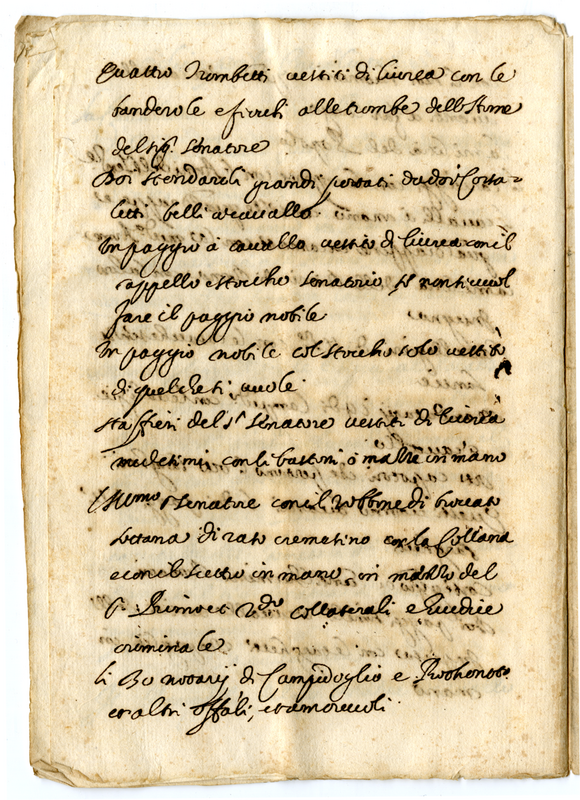 Quattro Trombetti vestiti di livrea con le
banderole e fiocchi alle trombe dell'Arme
del sig. Senatore
Doi stendardi grandi portati da doi Corsa=
letti belli a cavallo.
Un paggio à cavallo vestito di livrea con il
cappello e stocho senatorio se non ti vuol
fare il paggio nobile
Un paggio nobile col stocho solo vestito
di quel che ti vuole
Staffieri del s.r Senatore vestiti di livrea
medesimi con li bastoni ò mazze in mano
Ill.mo s.r Senatore con il Robbone di broccato
sottana di raso cremesino con la Collana
e con il scettro in mano in mezzo del
P. Primo et 2.do Collaterali e Giudice
criminale
li 30 notarij di Campidoglio e Prothonot.o
et altri offali,